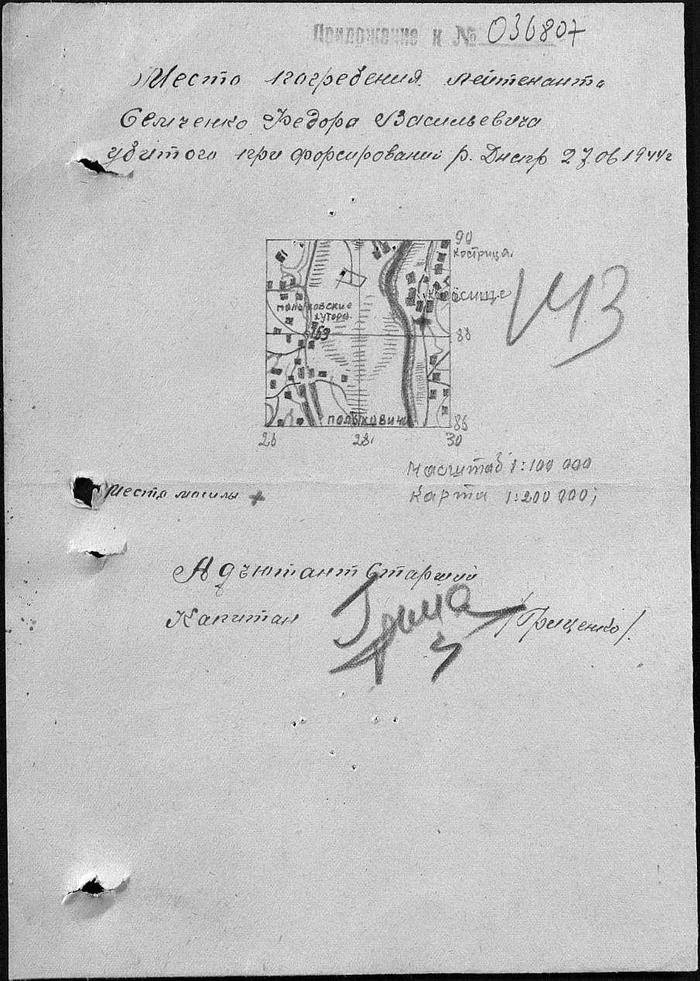 Приложение к № 036807
Место погребения лейтенанта
Семченко Федора Васильевича
убитого при форсировании р. Днепр 27.06.1944г
90
Кострица
Полыковские
хутора
153
88
Полыковичи
86
26 28 30
143
Масштаб 1:100 000
Карта 1:200 000;
Место могилы +
Адъютант Старший
Капитан /Гриценко/.